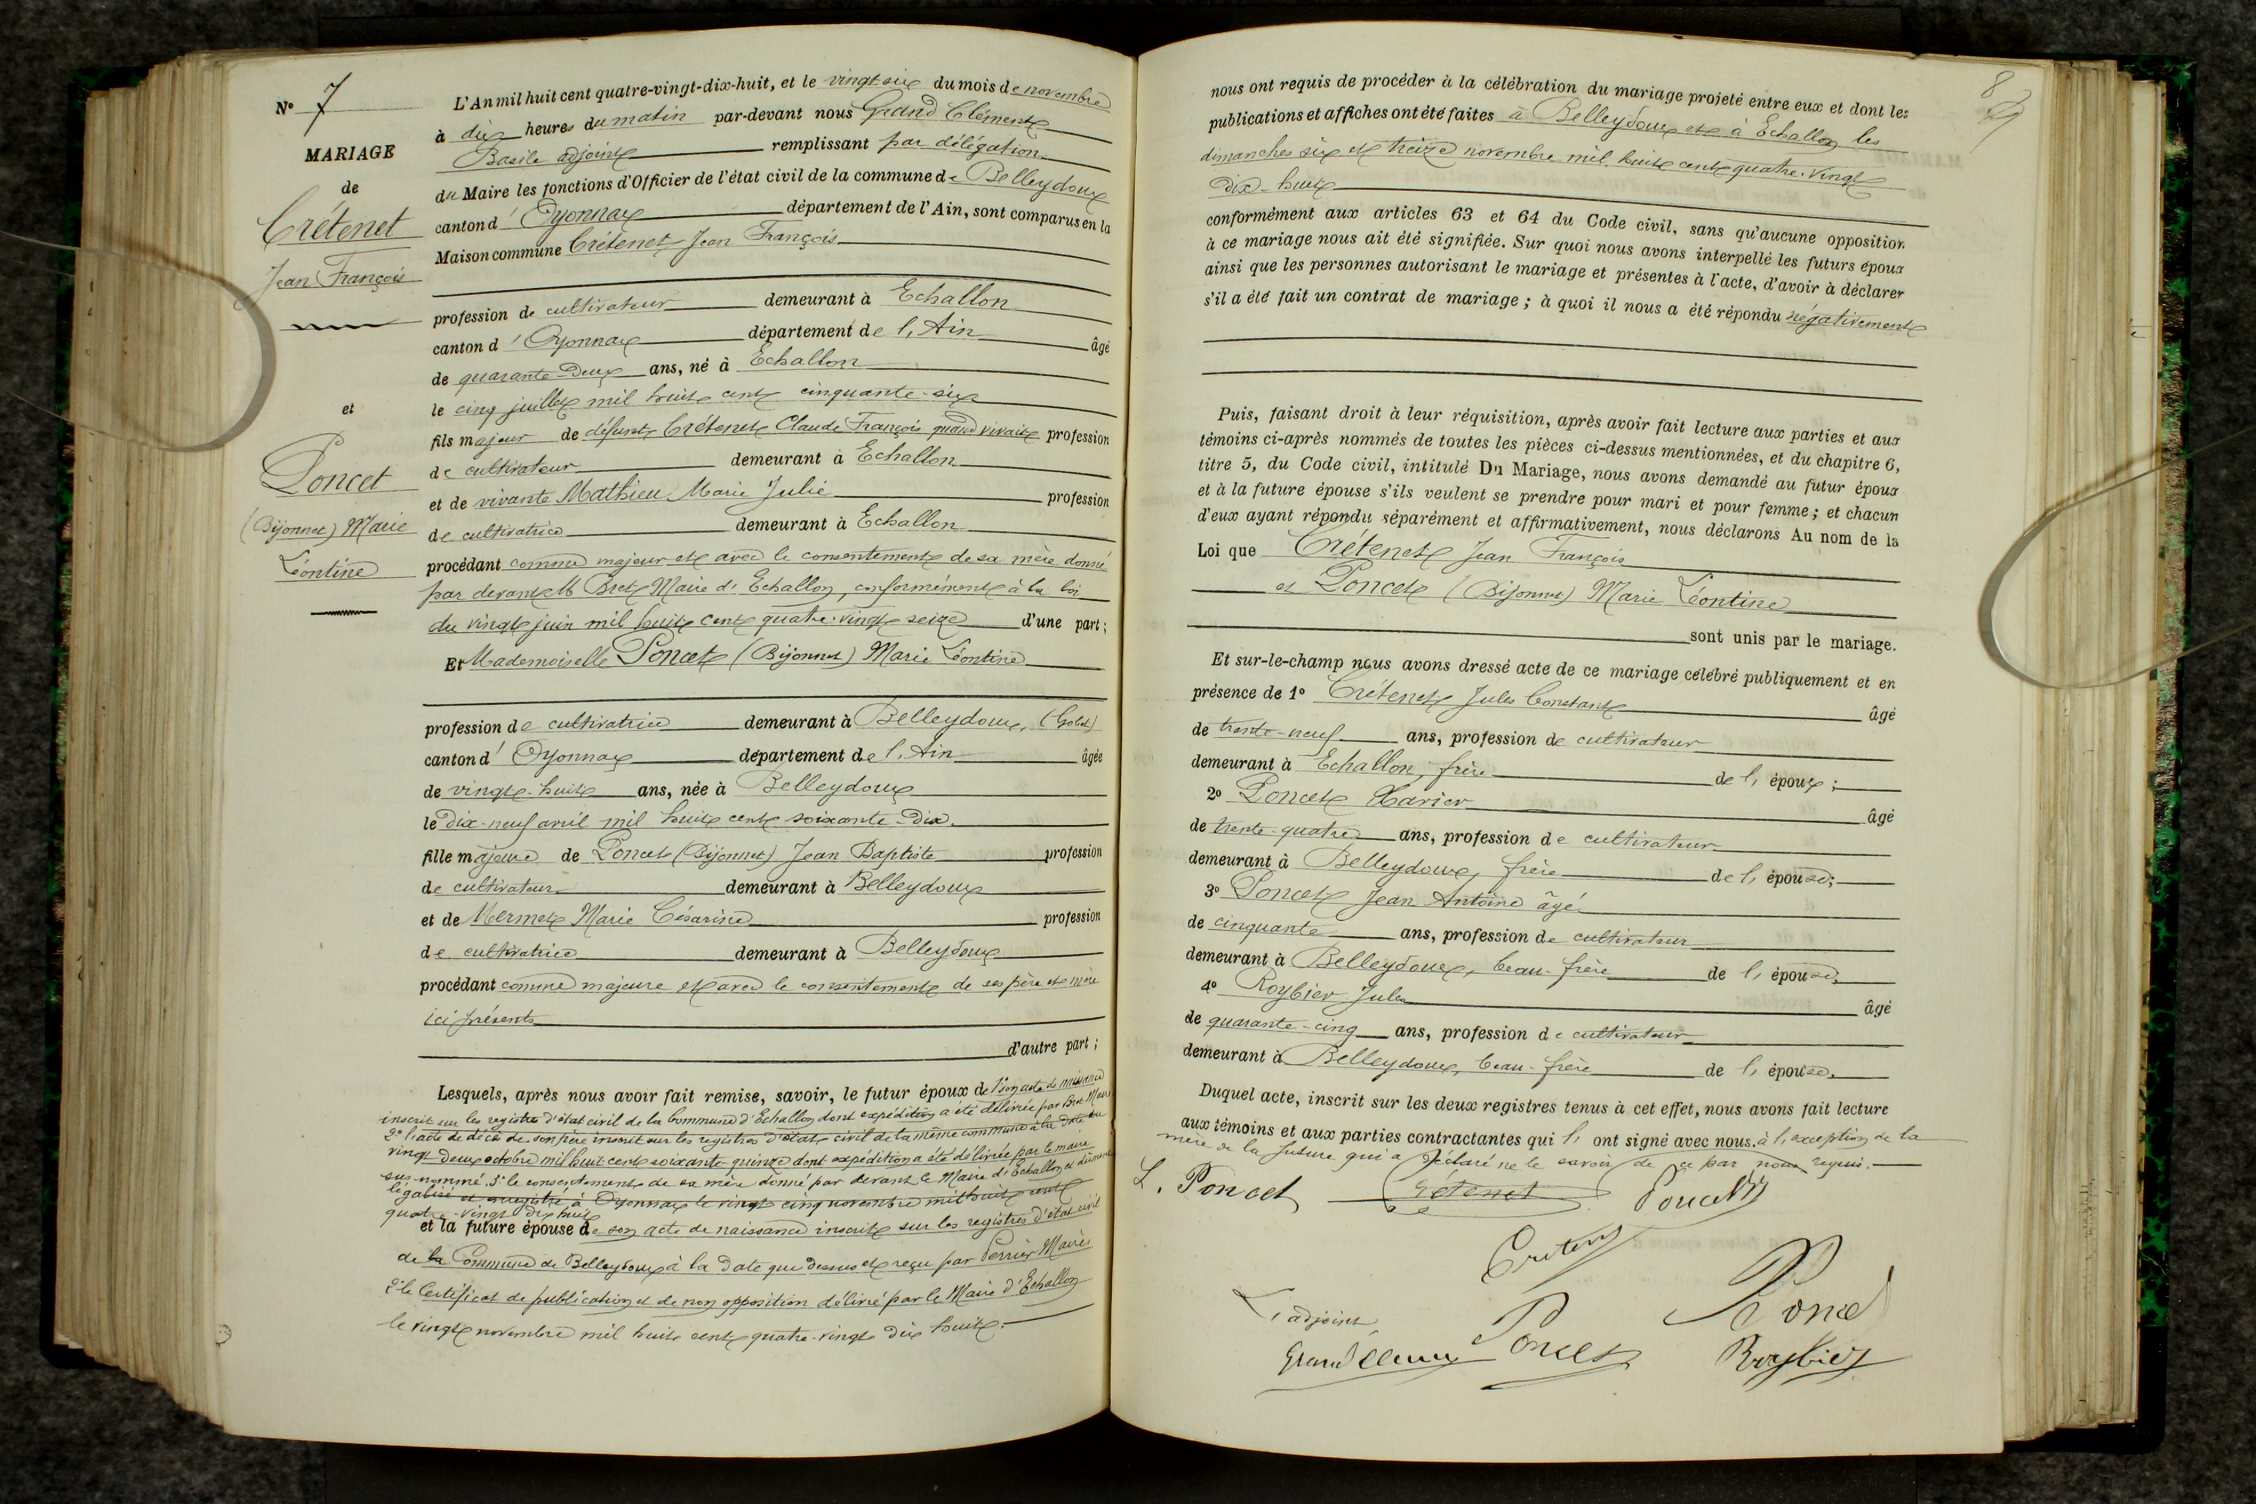 N° 7
MARIAGE
de
Crétenet
Jean François
et
Poncet
(Bijonnet) Marie
Léontine
L'An mil huit cent quatre-vingt-dix-huit, et le vingt-six du mois de novembre
à dix heures du matin par-devant nous Grand Clément
Basile adjoint remplissant par délégation
du Maire les fonctions d'Officier de l'état civil de la commune de Belleydoux
canton d'Oyonnax département de l'Ain, sont comparus en la
Maison commune Crétenet Jean François
profession de cultivateur demeurant à Echallon
canton d'Oyonnax département de l'Ain âgé
de quarante-deux ans, né à Echallon
le cinq juillet mil huit cent cinquante-six
fils majeur de défunt Crétenet Claude François quand vivait profession
de cultivateur demeurant à Echallon
et de vivante Mathieu Marie Julie profession
de cultivatrice demeurant à Echallon
procédant comme majeur et avec le consentement de sa mère donné
par devant M Bret Maire d'Echallon, conformément à la loi
du vingt juin mil huit cent quatre-vingt seize d'une part;
Et Mademoiselle Poncet (Bijonnet) Marie Léontine
profession de cultivatrice demeurant à Belleydoux, (Gobet)
canton d'Oyonnax département de l'Ain âgée
de vingt-huit ans, née à Belleydoux
le dix-neuf avril mil huit cent soixante-dix.
fille majeure de Poncet (Bijonnet) Jean Baptiste profession
de cultivateur demeurant à Belleydoux
et de Mermet Marie Césarine profession
de cultivatrice demeurant à Belleydoux
procédant comme majeure et avec le consentement de ses père et mère
ici présents
d'autre part;
Lesquels, après nous avoir fait remise, savoir, le futur époux de 1° son acte de naissance
inscrit sur les registres d'état civil de la Commune d'Echallon dont expédition a été délivrée par Bret Maire
2° l'acte de décès de son père inscrit sur les registres d'état civil de la même commune à la date du
vingt-deux octobre mil huit cent soixante quinze dont expédition a été délivrée par le maire
sus-nommé. 3° le consentement de sa mère donné par devant le Maire d'Echallon et dûment
légalisé et enregistré à Oyonnax le vingt cinq novembre mil huit cent
quatre-vingt dix huit
et la future épouse de son acte de naissance inscrit sur les registres d'état civil
de la Commune de Belleydoux à la date que dessus et reçu par Perrier Maire
2° le Certificat de publication et de non opposition délivré par le Maire d'Echallon
le vingt novembre mil huit cent quatre-vingt dix huit.
8
nous ont requis de procéder à la célébration du mariage projeté entre eux et dont les
publications et affiches ont été faites à Belleydoux et à Echallon les
dimanches six et treize novembre mil huit cent quatre-vingt
dix-huit
conformément aux articles 63 et 64 du Code civil, sans qu'aucune opposition
à ce mariage nous ait été signifiée. Sur quoi nous avons interpellé les futurs époux
ainsi que les personnes autorisant le mariage et présentes à l'acte, d'avoir à déclarer
s'il a été fait un contrat de mariage; à quoi il nous a été répondu négativement
Puis, faisant droit à leur réquisition, après avoir fait lecture aux parties et aux
témoins ci-après nommés de toutes les pièces ci-dessus mentionnées, et du chapitre 6,
titre 5, du Code civil, intitulé Du Mariage, nous avons demandé au futur époux
et à la future épouse s'ils veulent se prendre pour mari et pour femme; et chacun
d'eux ayant répondu séparément et affirmativement, nous déclarons Au nom de la
Loi que Crétenet Jean François
et Poncet (Bijonnet) Marie Léontine
sont unis par le mariage.
Et sur-le-champ nous avons dressé acte de ce mariage célébré publiquement et en
présence de 1° Crétenet Jules Constant âgé
de trente-neuf ans, profession de cultivateur
demeurant à Echallon, frère de l'époux;
2° Poncet Xavier âgé
de trente-quatre ans, profession de cultivateur
demeurant à Belleydoux, frère de l'épouse;
3° Poncet Jean Antoine âgé
de cinquante ans, profession de cultivateur
demeurant à Belleydoux, beau-frère de l'épouse;
4° Roybier Jules âgé
de quarante-cinq ans, profession de cultivateur
demeurant à Belleydoux, beau-frère de l'épouse.
Duquel acte, inscrit sur les deux registres tenus à cet effet, nous avons fait lecture
aux témoins et aux parties contractantes qui l'ont signé avec nous. à l'exception de la
mère de la future qui a déclaré ne le savoir de ce par nous requis.
L. Poncet Crétenet Poncet
L'adjoint
Grand Clément Poncet Poncet
Roybier